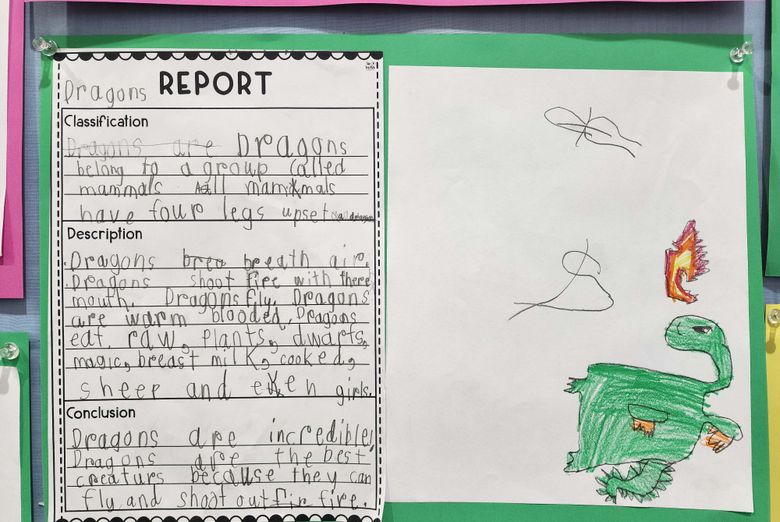 Dragons REPORT
Classification
Dragons are Dragons
belong to a group called
mammals All mammals
have four legs upset
Description
Dragons brea breath air.
Dragons shoot fire with there
mouth. Dragons fly. Dragons
are warm blooded. Dragons
eat raw, plants, dwarfs,
magic, breast milk, cooked,
sheep and even girls.
Conclusion
Dragons are incredible!
Dragons are the best
creaturs because they can
fly and shoot out fir fire.